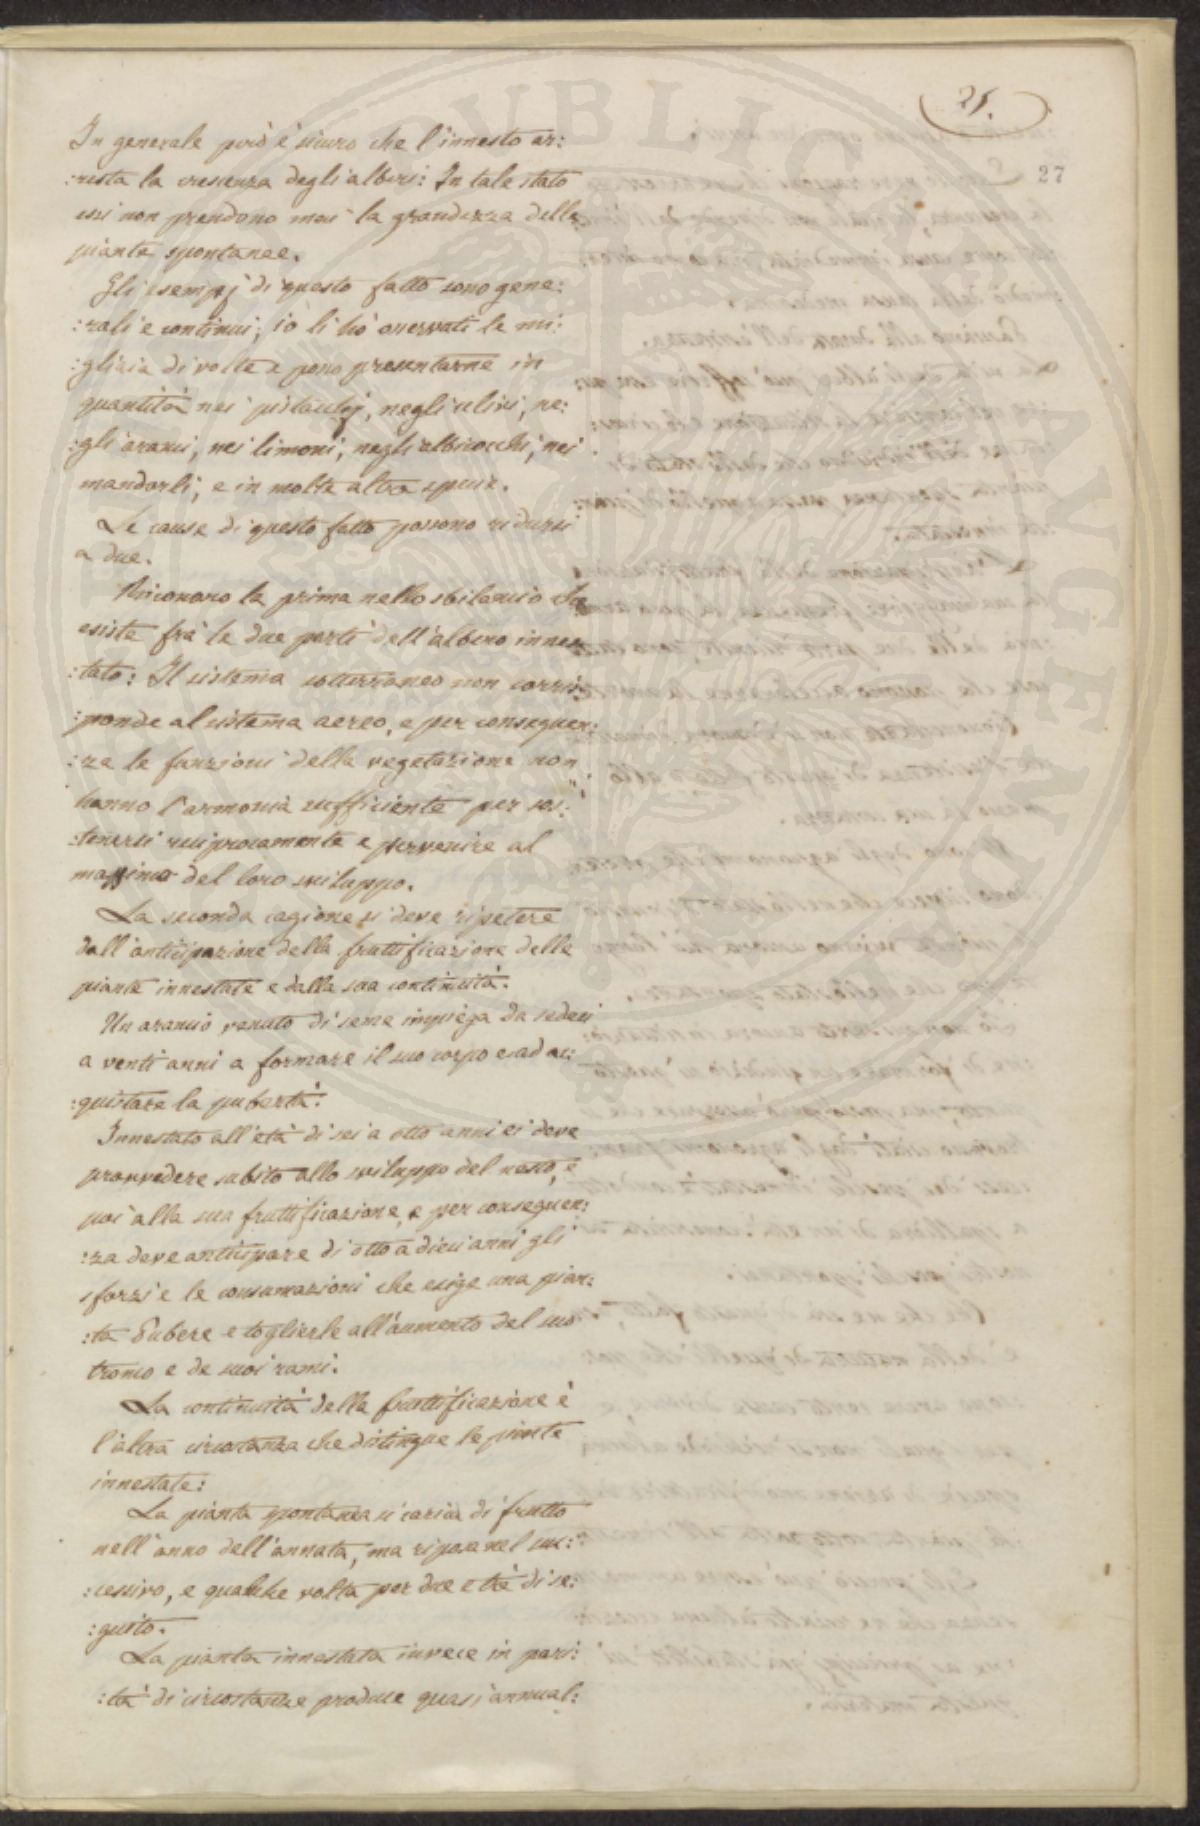 25.
27
In generale però è sicuro che l'innesto ar:
:resta la crescenza degli alberi: In tale stato
essi non prendono mai la grandezza delle
piante spontanee.
Gli esempj di questo fatto sono gene:
:rali e continui; io li hò osservati le mi:
:gliaia di volte e posso presentarne in
quantità nei pistacchj, negli ulivi, ne:
:gli aranci, nei limoni, negli albicocchi, nei
mandorli, e in molte altre specie.
Le cause di questo fatto possono ridursi
a due.
Riconosco la prima nello sbilancio che
esiste frà le due parti dell'albero innes
:tato: Il sistema sotterraneo non corris:
:ponde al sistema aereo, e per conseguen:
:za le funzioni della vegetazione non
hanno l'armonia sufficiente per sos:
:tenersi reciprocamente e pervenire al
massimo del loro sviluppo.
La seconda cagione si deve ripetere
dall'anticipazione della fruttificazione delle
piante innestate e dalla sua continuità.
Un arancio venuto di seme impiega da sedeci
a venti anni a formare il suo corpo e ad ac:
:quistare la pubertà:
Innestato all'età di sei a otto anni ei deve
provvedere subito allo sviluppo del nesto, e
poi alla sua fruttificazione, e per conseguen:
:za deve anticipare di otto a dieci anni gli
sforzi e le consumazioni che esige una pian:
:ta Pubere e toglierle all'aumento del suo
tronco e de suoi rami.
La continuità della fruttificazione è
l'altra circostanza che distingue le piante
innestate:
La pianta spontanea si carica di frutto
nell'anno dell'annata, ma riposa nel suc:
:cessivo, e qualche volta per due e trè di se:
:guito.
La pianta innestata invece in pari:
:tà di circostanze produce quasi annual: